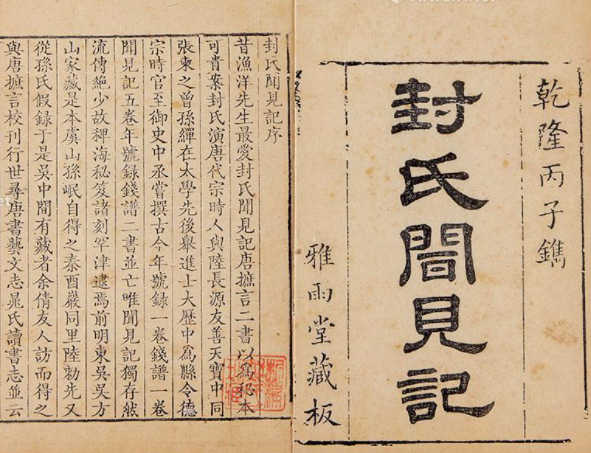 乾隆丙子鐫
封氏聞見記
雅雨堂藏板
封氏聞見記序
昔漁洋先生最愛封氏聞見記唐摭言二書以為秘本
可貴案封氏演唐代宗時人與陸長源友善天寶中同
張柬之曾孫繟在太學先後舉進士大歷中爲縣令德
宗時官至御史中丞嘗撰古今年號錄一卷錢譜一卷
聞見記五卷年號錄錢譜二書並亡唯聞見記獨存然
流傳絶少故稗海秘笈諸刻罕津逮焉前明東吳吳方
山家藏是本虞山孫岷自得之秦酉巖同里陸勑先又
從孫氏假録于是吳中間有藏者余倩友人訪而得之
與唐摭言校刋行世尋唐書藝文志晁氏讀書志並云